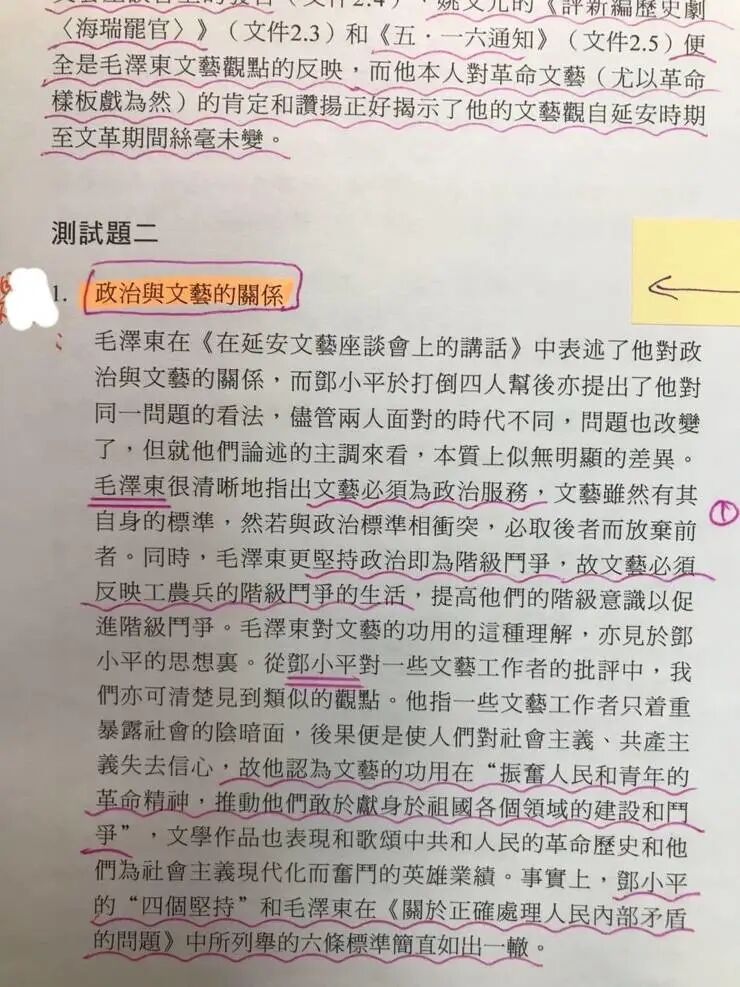 姚文元的《評新編歷史劇
〈海瑞罷官〉》（文件2.3）和《五·一六通知》（文件2.5）便
全是毛澤東文藝觀點的反映，而他本人對革命文藝（尤以革命
樣板戲為然）的肯定和讚揚正好揭示了他的文藝觀自延安時期
至文革期間絲毫未變。
測試題二
1. 政治與文藝的關係
毛澤東在《在延安文藝座談會上的講話》中表述了他對政
治與文藝的關係，而鄧小平於打倒四人幫後亦提出了他對
同一問題的看法，儘管兩人面對的時代不同，問題也改變
了，但就他們論述的主調來看，本質上似無明顯的差異。
毛澤東很清晰地指出文藝必須為政治服務，文藝雖然有其
自身的標準，然若與政治標準相衝突，必取後者而放棄前
者。同時，毛澤東更堅持政治即為階級鬥爭，故文藝必須
反映工農兵的階級鬥爭的生活，提高他們的階級意識以促
進階級鬥爭。毛澤東對文藝的功用的這種理解，亦見於鄧
小平的思想裏。從鄧小平對一些文藝工作者的批評中，我
們亦可清楚見到類似的觀點。他指一些文藝工作者只着重
暴露社會的陰暗面，後果便是使人們對社會主義、共產主
義失去信心，故他認為文藝的功用在“振奮人民和青年的
革命精神，推動他們敢於獻身於祖國各個領域的建設和鬥
爭”，文學作品也表現和歌頌中共和人民的革命歷史和他
們為社會主義現代化而奮鬥的英雄業績。事實上，鄧小平
的“四個堅持”和毛澤東在《關於正確處理人民內部矛盾
的問題》中所列舉的六條標準簡直如出一轍。